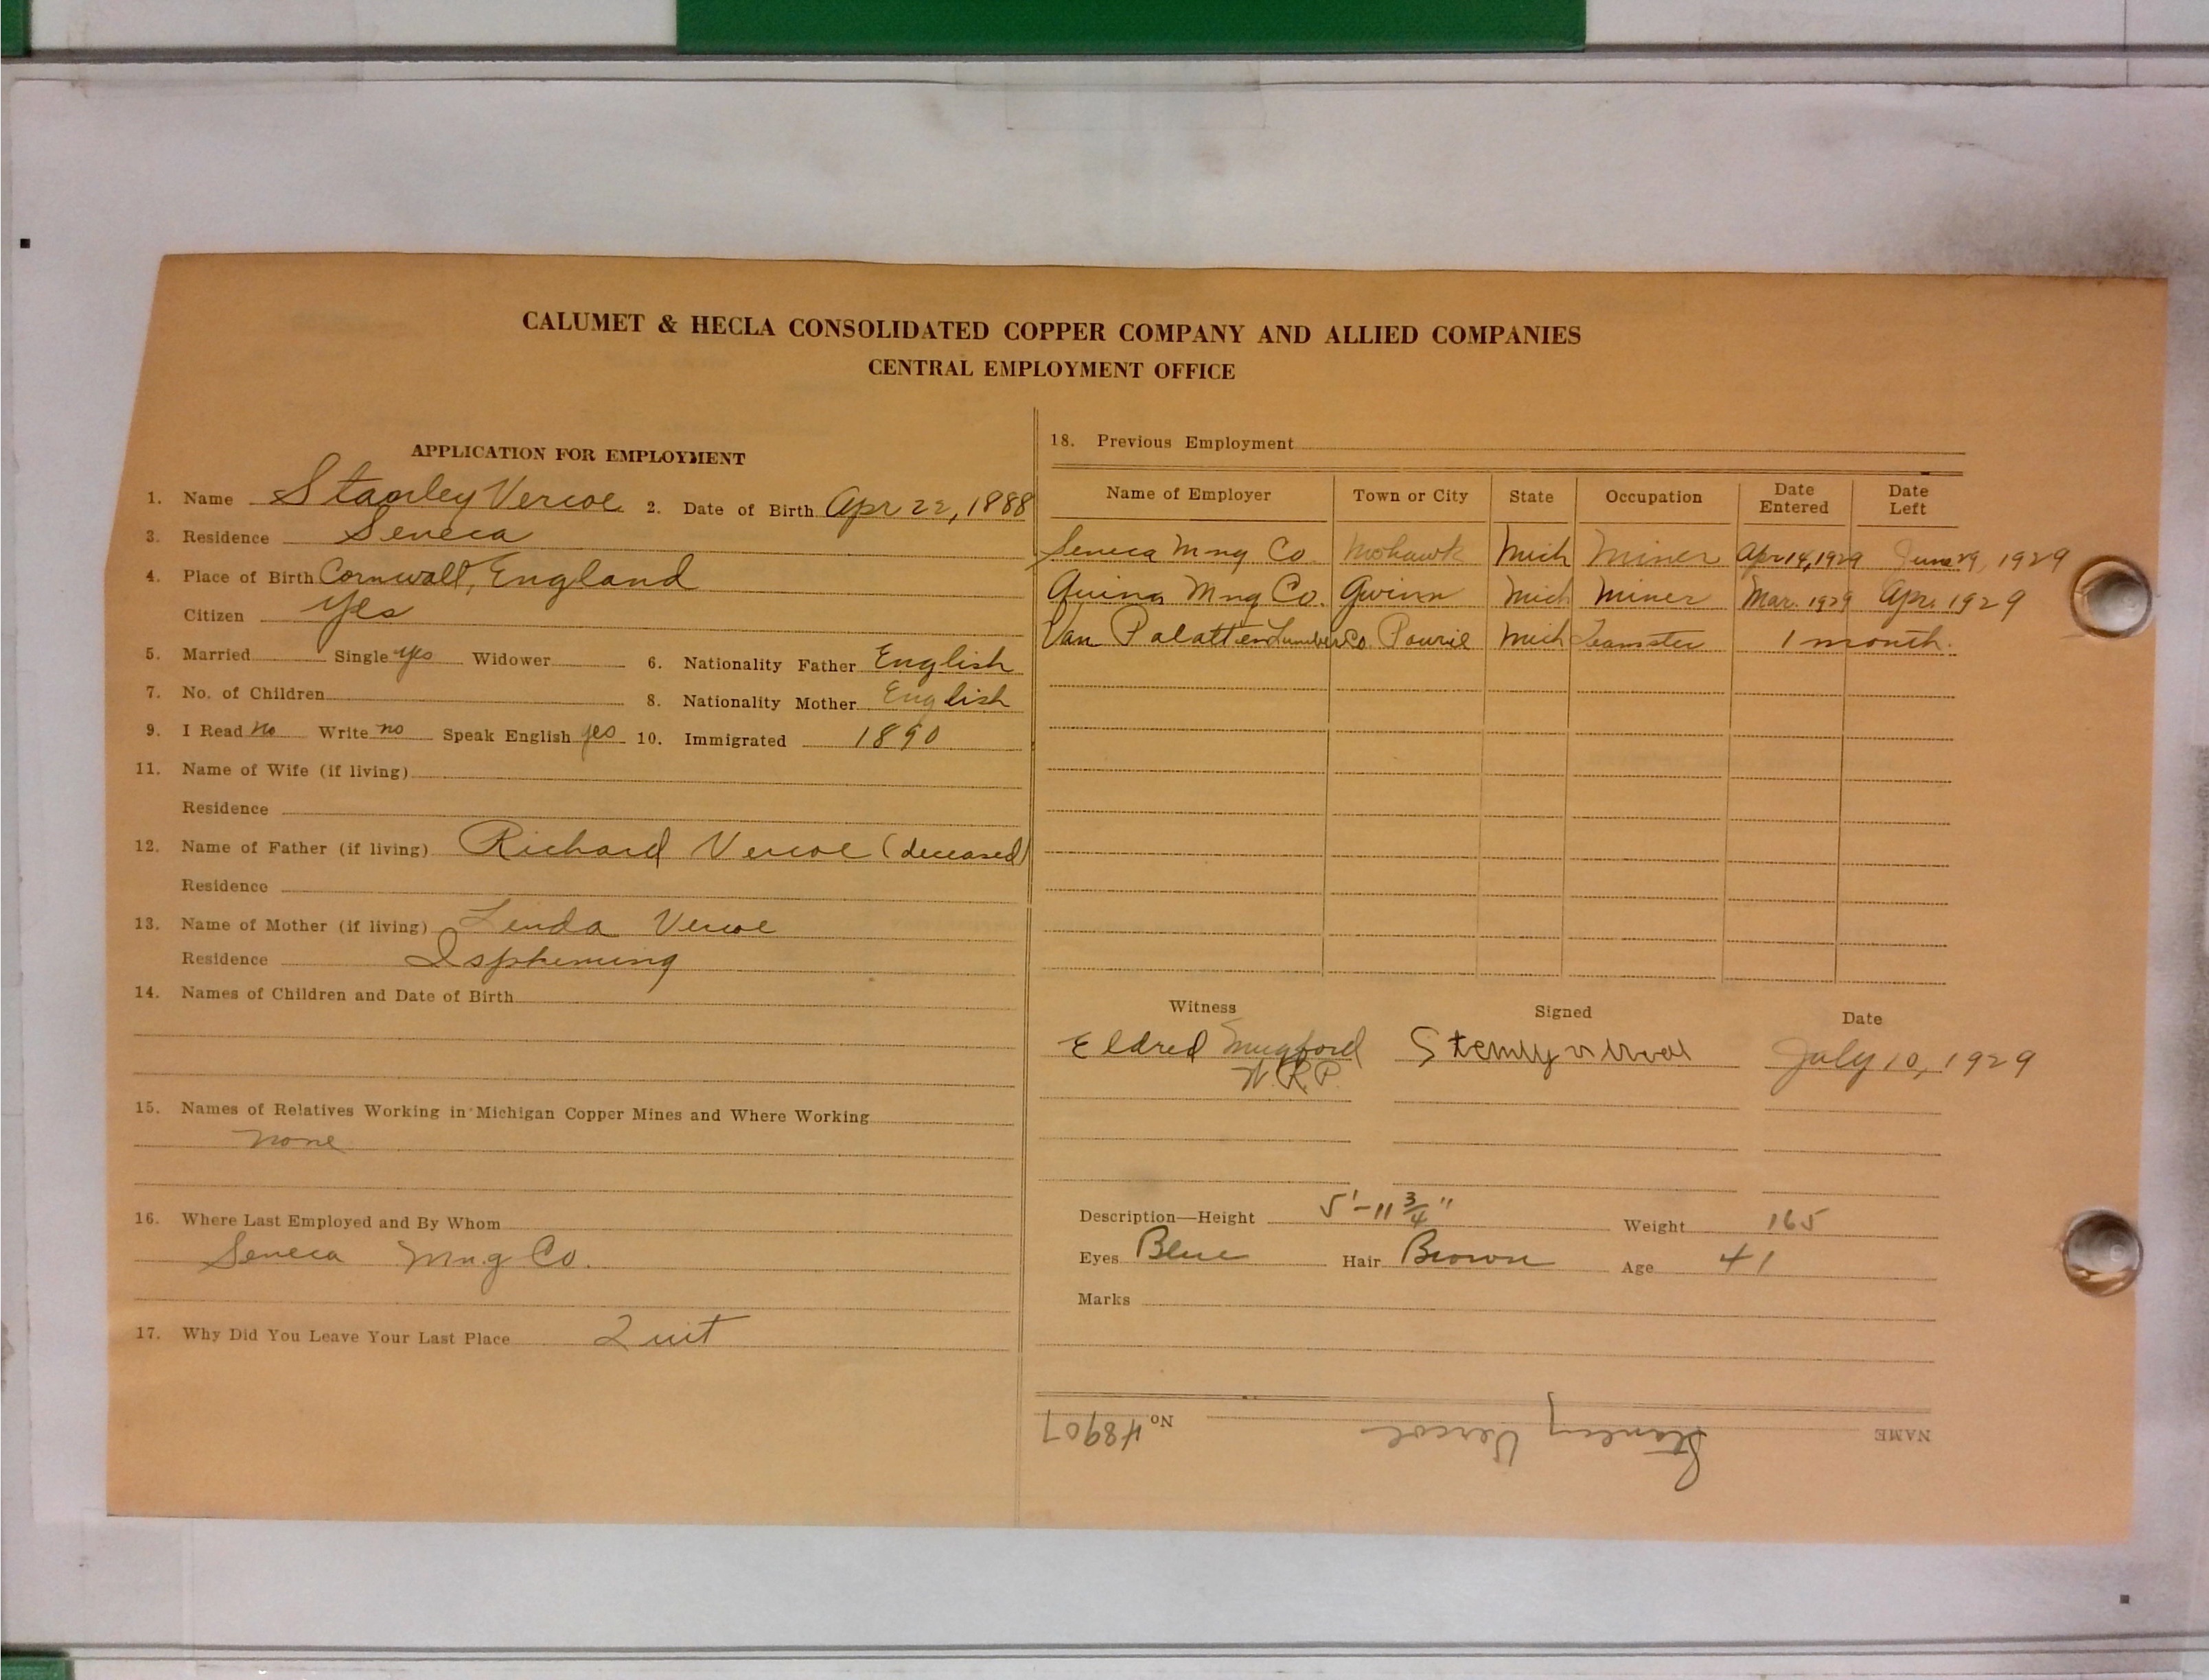 CALUMET & HECLA CONSOLIDATED COPPER COMPANY AND ALLIED COMPANIES
CENTRAL EMPLOYMENT OFFICE
APPLICATION FOR EMPLOYMENT
1. Name Stanley Vercoe 2. Date of Birth Apr 22, 1888
3. Residence Seneca
4. Place of Birth Cornwall, England
Citizen Yes
5. Married Single yes Widower 6. Nationality Father English
7. No. of Children 8. Nationality Mother English
9. I Read no Write no Speak English yes 10. Immigrated 1890
11. Name of Wife (if living)
Residence
12. Name of Father (if living) Richard Vercoe (deceased)
Residence
13. Name of Mother (if living) Linda Vercoe
Residence Ispheming
14. Names of Children and Date of Birth
15. Names of Relatives Working in Michigan Copper Mines and Where Working
none
16. Where Last Employed and By Whom
Seneca Mng Co.
17. Why Did You Leave Your Last Place Quit
18. Previous Employment
Name of Employer Town or City State Occupation Date Entered Date Left
Seneca Mng Co. Mohawk Mich Miner Apr 14, 1929 June 29, 1929
Mng Co. Gwinn Mich Miner Mar. 1929 Apr. 1929
Van Lumber Co. Mich Teamster 1 month.
Witness Signed Date
Eldred Mugford July 10, 1929
W.R.P.
Description—Height 5'-11 3/4" Weight 165
Eyes Blue Hair Brown Age 41
Marks
NAME Stanley Vercoe No 48907